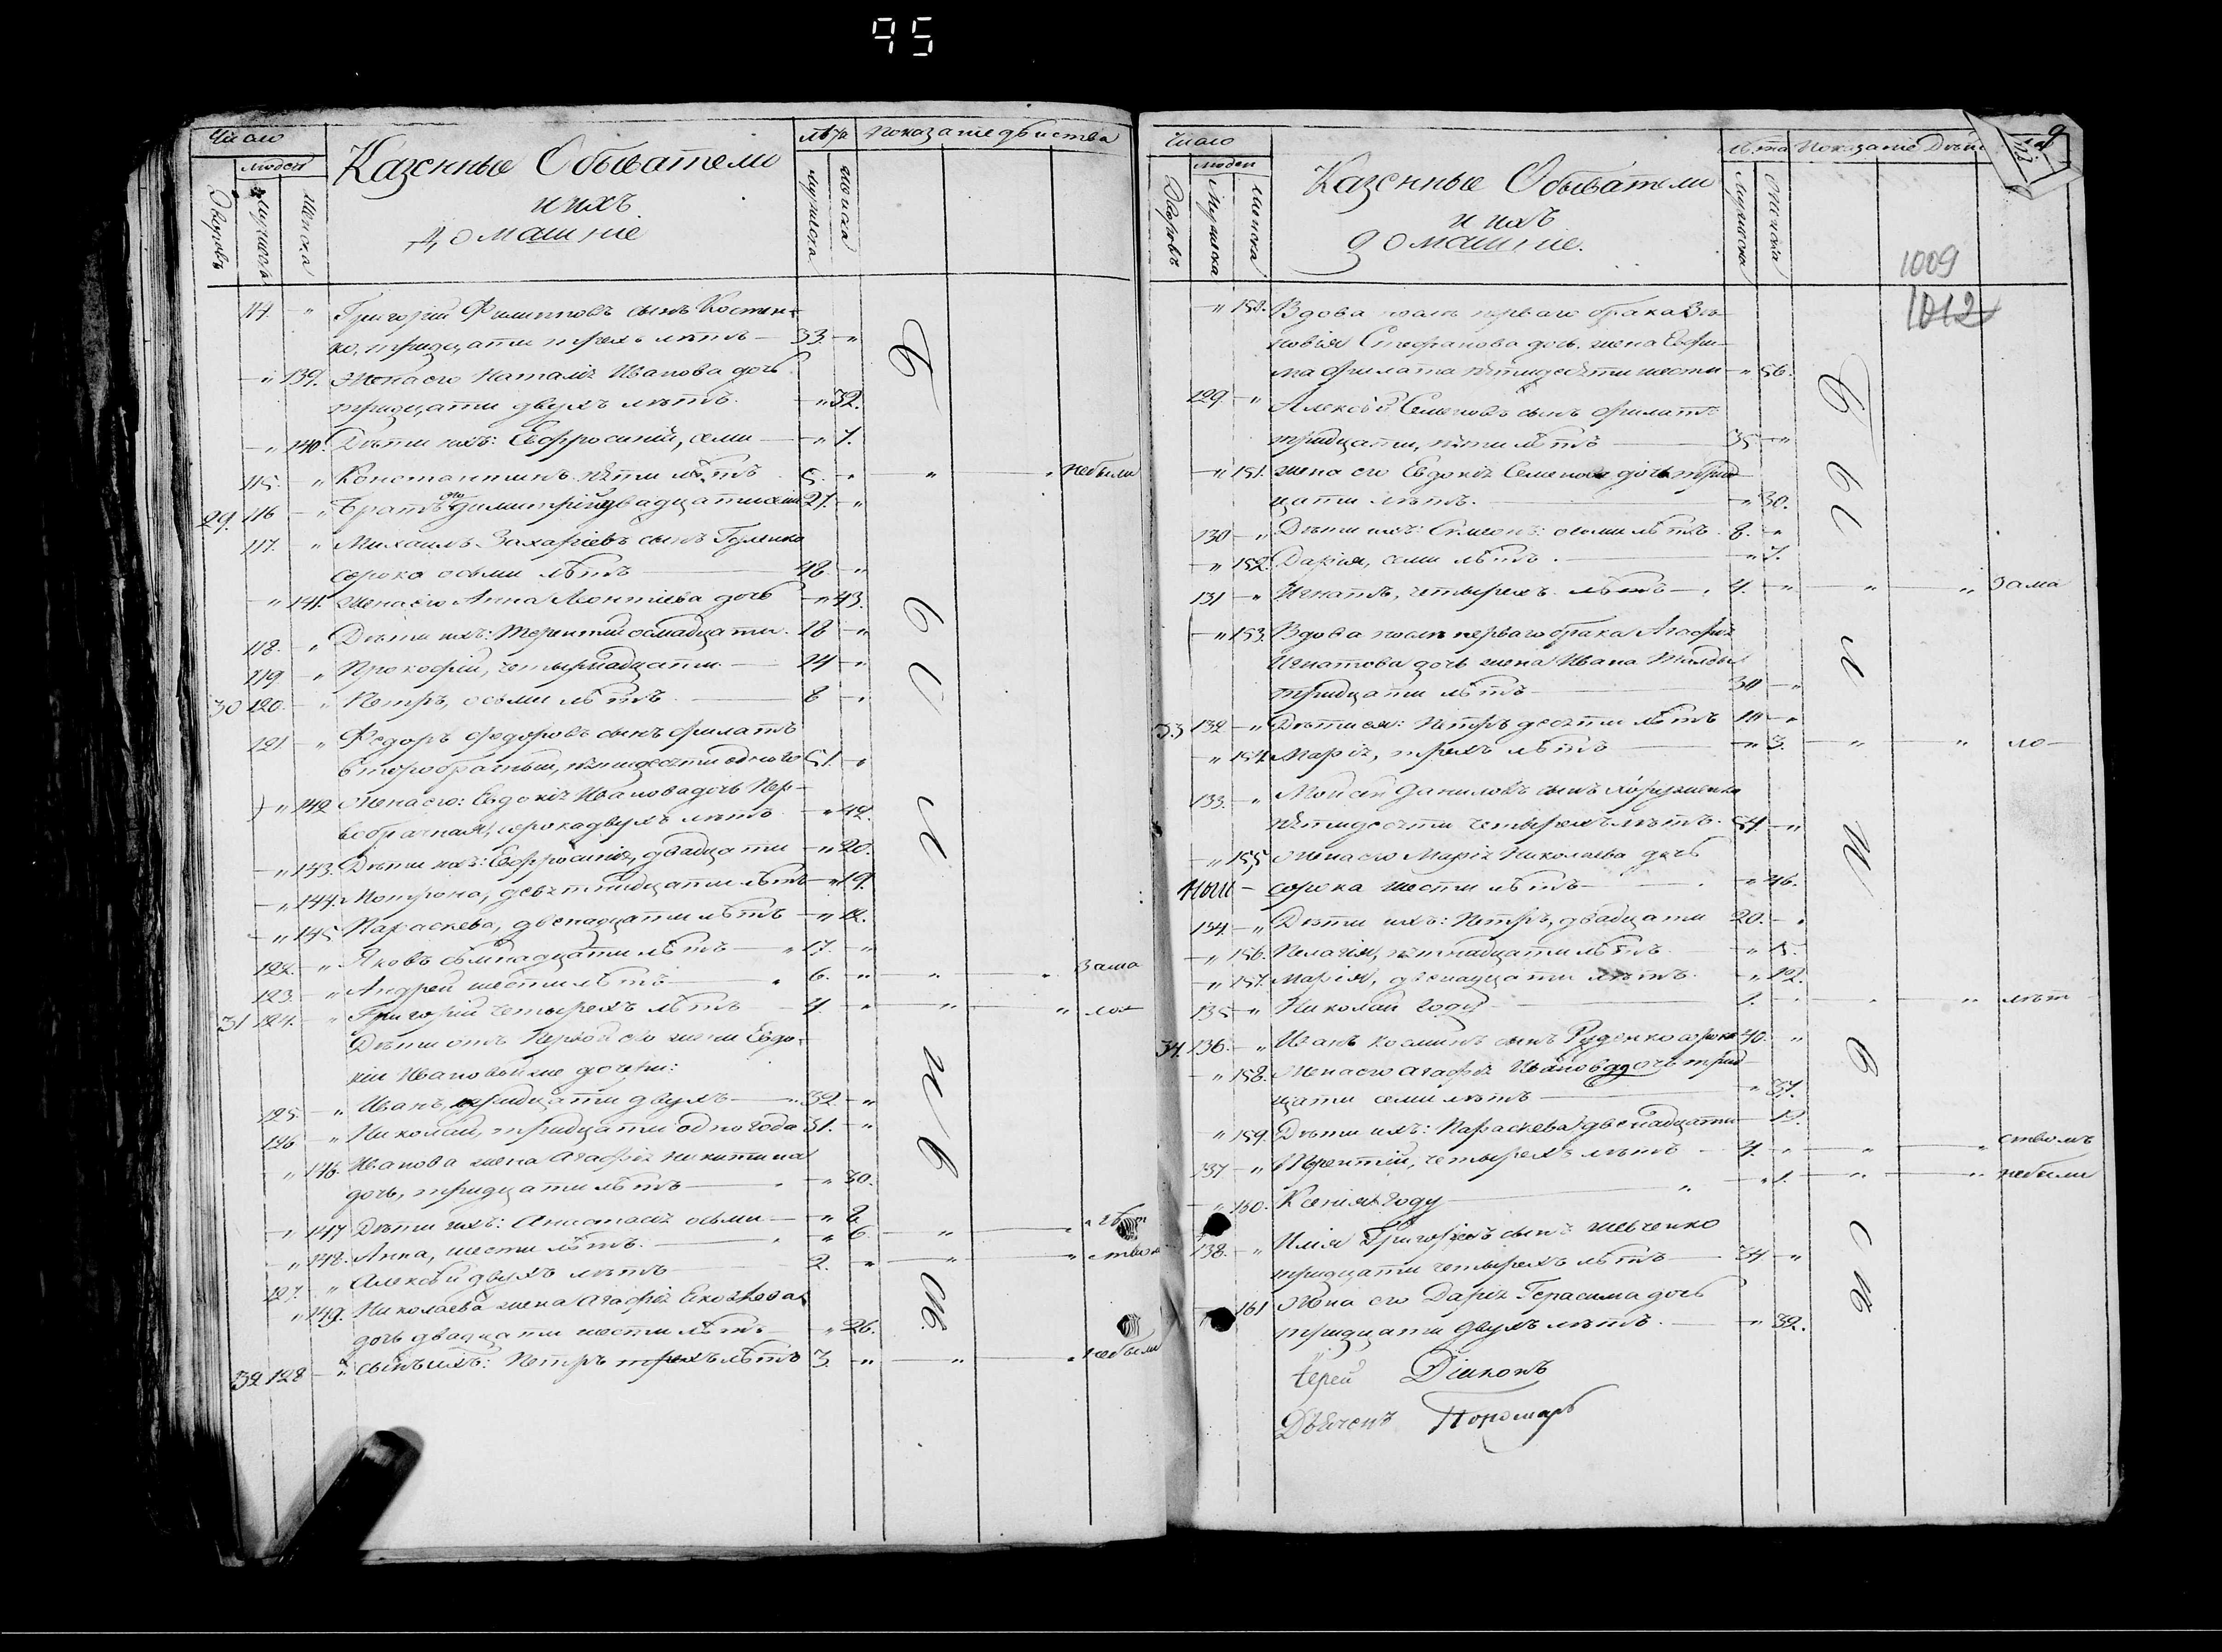 95
Число
людей
Дворовъ
мужеска
женска
Казенные Обыватели
и ихъ
домашніе
лѣта
мужеска
женска
Показаніе дѣйства
114. " Григорій Филиповъ сынъ Костен-
ко, тридцати трехъ лѣтъ 33. "
" 139. Жена его Наталія Иванова дочь
тридцати двухъ лѣтъ. " 32.
" 140. Дѣти ихъ: Евфросинія, семи " 7.
115. " Константинъ пяти лѣтъ 5. " " " небыли
29. 116 " Братъ его Димитрій двадцати семи 27. "
117. " Михаилъ Захаріевъ сынъ Гуленко
сорока осьми лѣтъ 48. "
" 141. Жена его Анна Леонтіева дочь " 43.
118. " Дѣти ихъ: Терентій осмнадцати. 18 "
119 " Прокофій, четырнадцати. 14 "
30 120. " Петръ, осьми лѣтъ 8 "
121 " Федоръ Федоровъ сынъ Филатъ
второбрачный, пятидесяти одного 51. "
" 142 Жена его: Евдокія Иванова дочь Пер-
вобрачная, сорока двухъ лѣтъ " 42.
" 143. Дѣти ихъ: Евфросинія, двадцати " 20.
" 144. Мотрона, девятнадцати лѣтъ " 19.
" 145 Параскева, двенадцати лѣтъ " 12.
122. " Яковъ семнадцати лѣтъ " 17. "
123. " Андрей шести лѣтъ 6. " " " Зама
31 124. " Григорій четырехъ лѣтъ 4. " " " лол
Дѣти отъ первой его жены Евдо-
кіи Ивановой же дочери:
125. " Иванъ, тридцати двухъ 32. "
126 " Николай, тридцати одного года 31. "
" 146. Иванова жена Агафія Никитина
дочь, тридцати лѣтъ " 30.
" 147 Дѣти ихъ: Анастасія осьми " 8
" 148. Анна, шести лѣтъ. " 6. " "
127. " Алексѣй двухъ лѣтъ 2. " " " ством
" 149. Николаева жена Агафія
дочь двадцати шести лѣтъ " 26.
32 128 " Сынъ ихъ: Петръ трехъ лѣтъ 3. " " " небыли
Число
людей
Дворовъ
Мужеска
Женска
Казенные Обыватели
и ихъ
домашніе.
Лѣта
Мужеска
Женска
Показаніе Дѣй
1009
1012
" 150. Вдова послѣ перваго брака Зѣ-
новія Стефанова дочь. жена Ефи-
ма Филата пятидесяти шести " 56.
129. " Алексѣй Семеновъ сынъ Филатъ
тридцати, пяти лѣтъ 35 "
" 151. жена его Евдокія Семенова дочь трид-
цати лѣтъ. " 30.
130 " Дѣти ихъ: Симеонъ: осьми лѣтъ. 8. "
" 152. Дарія, семи лѣтъ. " 7.
131 " Игнатъ, четырехъ лѣтъ 4. " " " Зама
" 153. Вдова послѣ перваго брака Агафія
Игнатова дочь жена Ивана
тридцати лѣтъ 30 "
33 132 " Дѣти ея: Петръ десяти лѣтъ 10 "
" 154. Марія, трехъ лѣтъ " 3. " " ло
133. " Моисей Даниловъ сынъ
пятидесяти четырехъ лѣтъ. 54. "
" 155 Жена его Марія Николаева дочь
сорока шести лѣтъ " 46.
134. " Дѣти ихъ: Петръ, двадцати 20. "
" 156. Пелагія, пятнадцати лѣтъ " 15.
" 157. Марія, двенадцати лѣтъ. " 12.
135 " Николай году 1. " " " лѣт
34. 136. " Иванъ Косминъ сынъ Руденко сорока 40. "
" 158. Жена его Агафія Иванова дочь трид-
цати семи лѣтъ " 37.
" 159. Дѣти ихъ: Параскева двенадцати 12.
137 " Терентій, четырехъ лѣтъ 4. " " " ствомъ
" 160. Ксенія году " " 1. " " небыли
138. " Илія Григорьевъ сынъ Шевченко
тридцати четырехъ лѣтъ 34 "
161 Жена его Дарія Герасима дочь
тридцати двухъ лѣтъ. " 32.
Іерей Діаконъ
Дьячекъ Пономарь